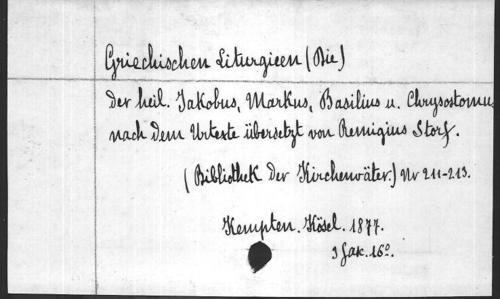 Griechischen Liturgieen (Die)
der heil. Jakobus, Markus, Basilius u. Chrysostomu
nach dem Urtexte übersetzt von Remigius Storf.
(Bibliothek der Kirchenväter.) Nr 211-213.
Kempten. Kösel. 1877.
3 fak. 16º.